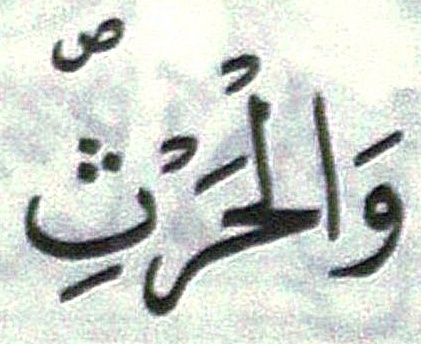 وَالْحَرْثِ ۗص